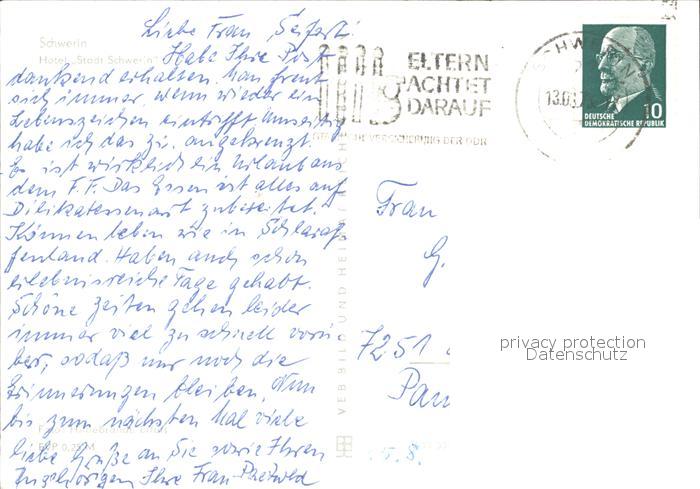 Liebe Frau Seifert!
Schwerin
Hotel "Stadt Schwerin"
Habe Ihre Post
dankend erhalten. Man freut
sich immer, wenn wieder ein
Lebenszeichen eintrifft
habe ich das zu. angekreuzt.
Es ist wirklich ein Urlaub aus
dem F.F. Das Essen ist alles auf
Dilikatessenart zubereitet.
Können leben wie in Schlaraf
fenland. Haben auch schon
erlebnisreiche Tage gehabt.
Schöne Zeiten gehen leider
immer viel zu schnell vorü
ber, sodaß nur noch die
Erinnerungen bleiben. Nun
bis zum nächsten Mal viele
liebe Grüße an Sie sowie Ihren
Angehörigen Ihre Frau
EVP 0,25 M
VEB BILD UND HEIMAT
ELTERN
ACHTET
DARAUF
VERSICHERUNG DER DDR
SCHWERIN
13.0
10
DEUTSCHE
DEMOKRATISCHE REPUBLIK
Frau
G.
7251
Pan
privacy protection
Datenschutz